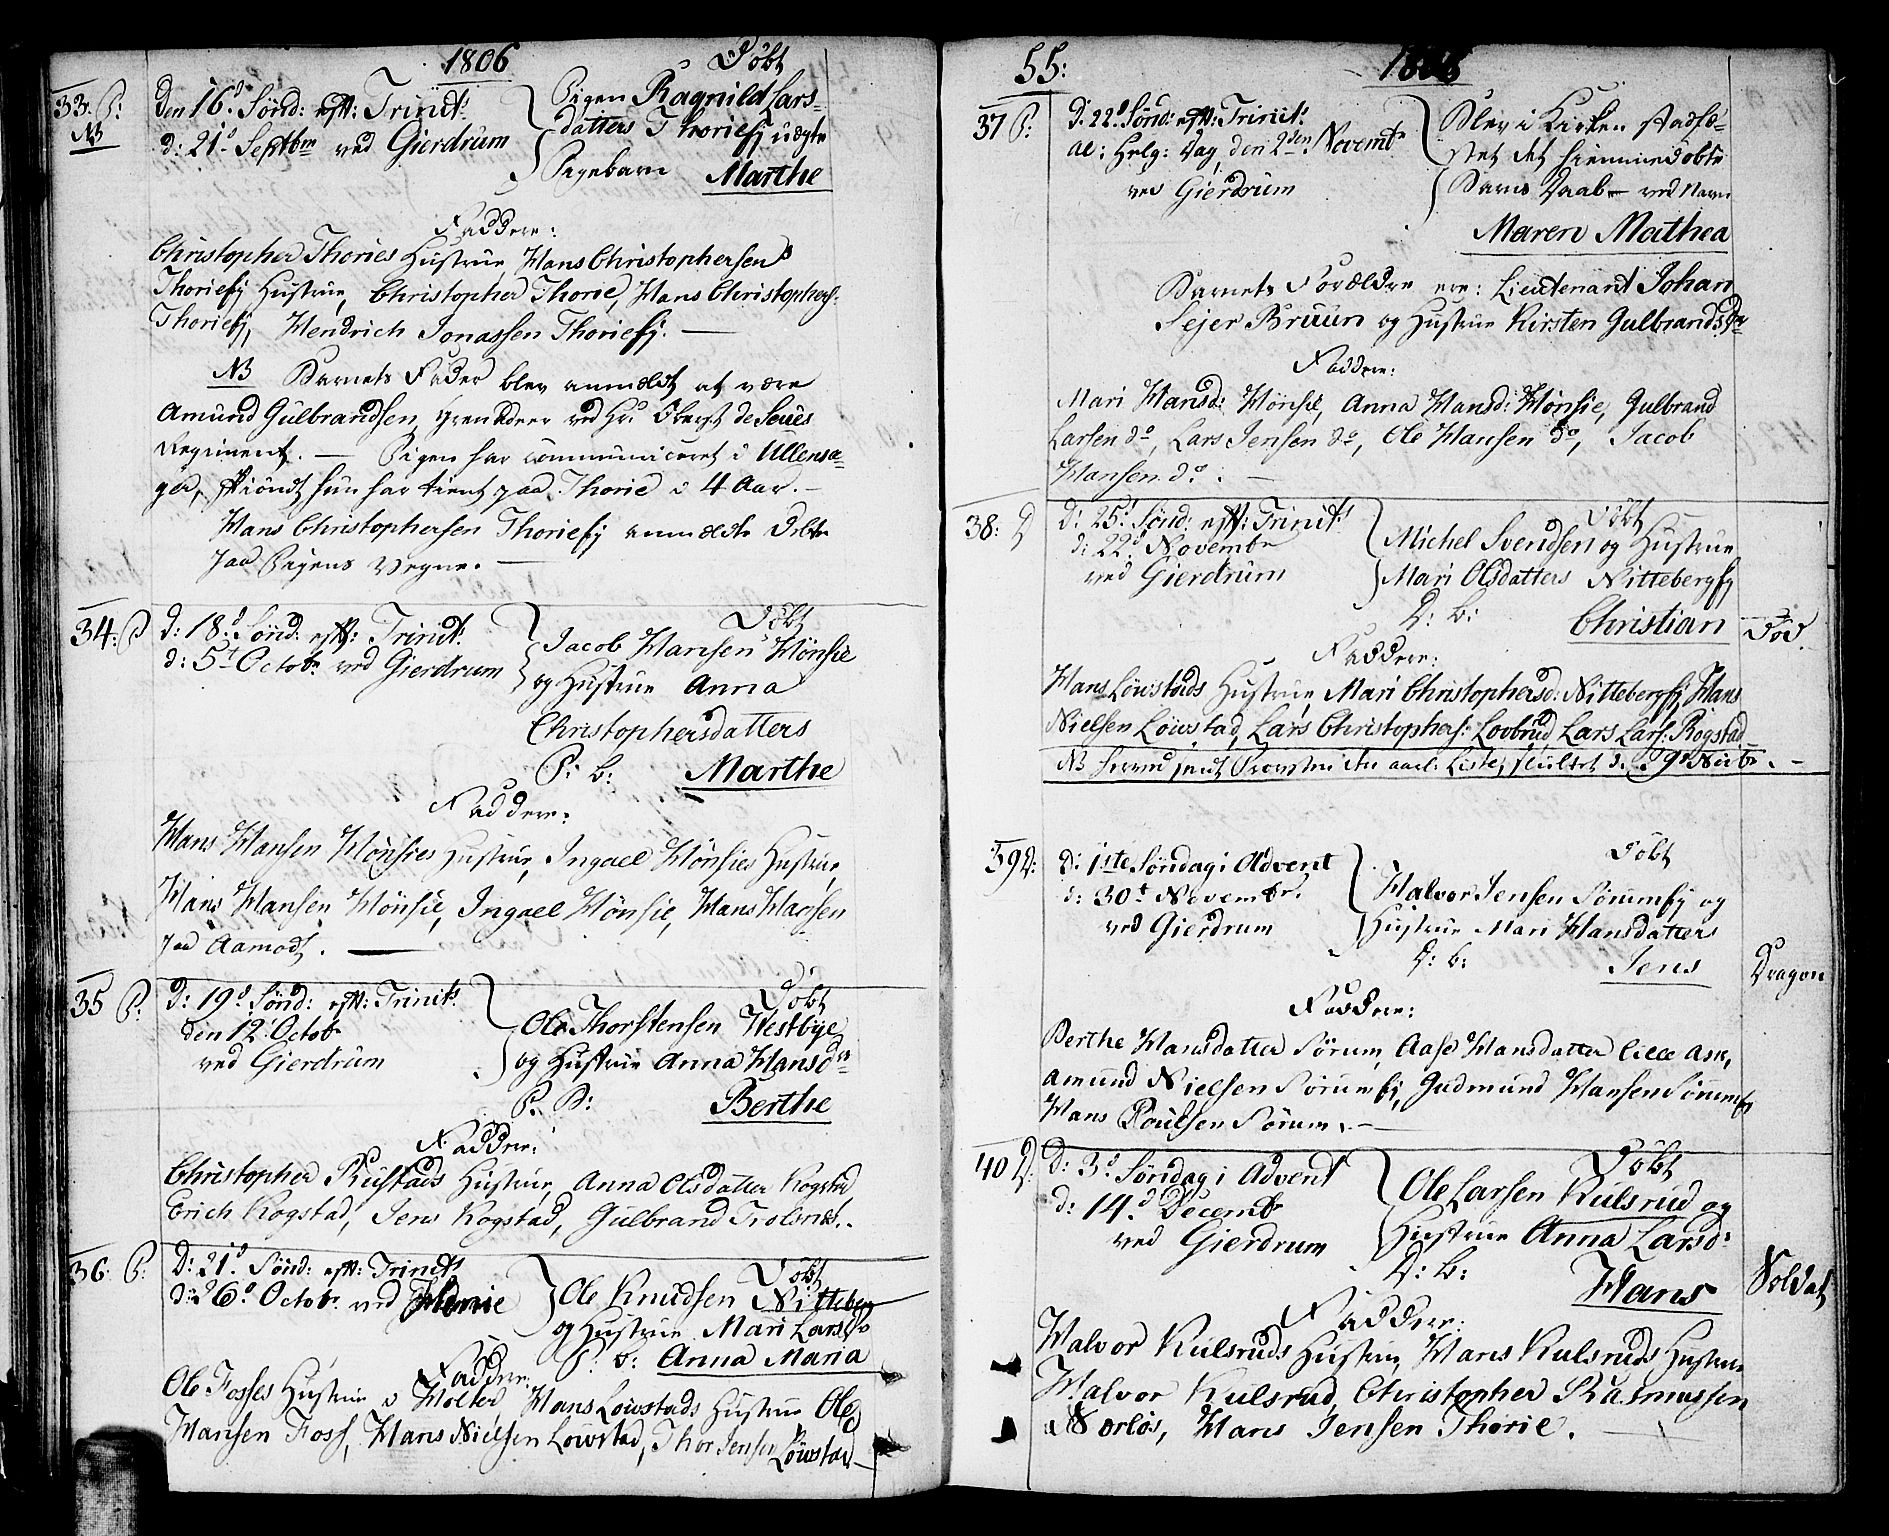 1806
Döbt
33. P:
NB
Den 16d Sønd: eft: Trinit:
d: 21d Septbr ved Gierdrum
Pigen Ragnild Lars-
datters Thoriefj uægte
Pigebarn Marthe
Faddere:
Christopher Thories Hustrue Hans Christophersens
Thoriefj Hustrue, Christopher Thorie, Hans Christophers:
Thoriefj, Hendrich Jonassen Thoriefj. —
NB Barnets Fader blev anmeldt at være
Amund Gulbrandsen, Grenadeer ved Hr: Oberst de Seues
Regiment. — Pigen har communiceret i Ullensa-
ger, skiöndt hun har tient paa Thorie i 4 Aar. —
Hans Christophersen Thoriefj anmeldte dette
paa Pigens Vegne. —
34: P
D: 18d Sønd: eft: Trinit:
d: 5t Octobr ved Gierdrum
Döbt
Jacob Hansen Hönsie
og Hustrue Anna
Christophersdatters
P: b: Marthe
Faddere:
Hans Hansen Hönsies Hustrue, Ingael Hönsies Hustrue,
Hans Hansen Hönsie, Ingael Hönsie, Hans Hansen
paa Aamodt. —
35 P:
D: 19d Sønd: eft: Trinit:
den 12 Octobr
ved Gierdrum
Döbt
Ole Thorstensen Westbye
og Hustrue Anna Hansdr
P: B: Berthe
Faddere:
Christopher Rustads Hustrue, Anna Olsdatter Rogstad
Erich Rogstad, Jens Rogstad, Gulbrand Trolsnes.
36. P:
D: 21d Sønd: eft: Trinit:
d: 26d Octobr ved
Döbt
Ole Knudsen Nitteberg
og Hustrue Mari Larsdr
P: b: Anna Maria
Faddere:
Ole Fosses Hustrue i Holter Hans Löwstads Hustrue Ole
Hansen Foss, Hans Nielsen Lowstad, Thor Jensen Löwstad —
55:
1806
37 P:
D: 22d Sønd: eft: Trinit:
al: Helg: Dag, den 2den Novembr
ved Gierdrum
Blev i Kirken stadfæ-
stet det hiemmedöbte
Barns Daab — ved Navn
Maren Mathea
Barnets Forældre ere: Lieutenant Johan
Sejer Bruun og Hustrue Kirsten Gulbrandsdr
Faddere:
Mari Hansd: Hönsie, Anna Hansd: Hönsie, Gulbrand
Larsen do, Lars Jensen do, Ole Hansen do, Jacob
Hansen do. —
38: D
D: 25d Sønd: eft: Trinit:
d: 22d Novembr
ved Gierdrum
Döbt
Michel Svendsen og Hustrue
Mari Olsdatters Nittebergfj
D: b: Christian
Död
Faddere:
Hans Löwstads Hustrue, Mari Christophersd: Nittebergfj Hans
Nielsen Löwstad, Lars Christophers: Lovbrud, Lars Lars: Rogstad
NB Liste, sluttet d:
39 D:
D: 1ste Søndag i Advent
d: 30t Novembr.
ved Gierdrum
Döbt
Halvor Jensen Sørumfj og
Hustrue Mari Hansdatters
D: b: Jens
Dragon
Faddere:
Berthe Hansdatter Sørum, Aase Hansdatter Lille Ask,
Amund Nielsen Sørumfj, Gudmund Hansen Sørumfj
Hans Poulsen Sørum. —
40 D:
D: 3d Søndag i Advent
d: 14d Decembr
ved Gierdrum
Döbt
Ole Larsen Kulsrud og
Hustrue Anna Larsd:
D: b: Hans
Soldat
Faddere:
Halvor Kulsruds Hustrue, Hans Kulsruds Hustrue
Halvor Kulsrud, Christopher Rasmussen
Norlös, Hans Jensen Thorie. —